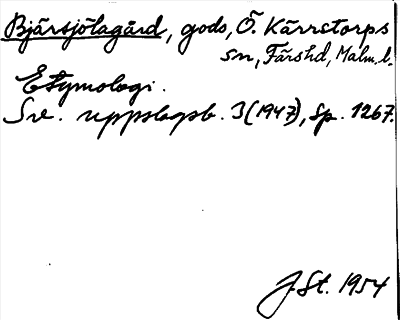 Bjärsjölagård, gods, Ö. Kärrstorps
sn, Färshd, Malm. l.
Etymologi.
Sv. uppslagsb. 3 (1947), sp. 1267.
J. St. 1954